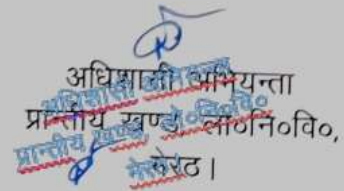 अधिशासी अभियन्ता
प्रान्तीय खण्ड, लो०नि०वि०,
मेरठ।
अधिशासी अभियन्ता
प्रान्तीय खण्ड, लो०नि०वि०
मेरठ